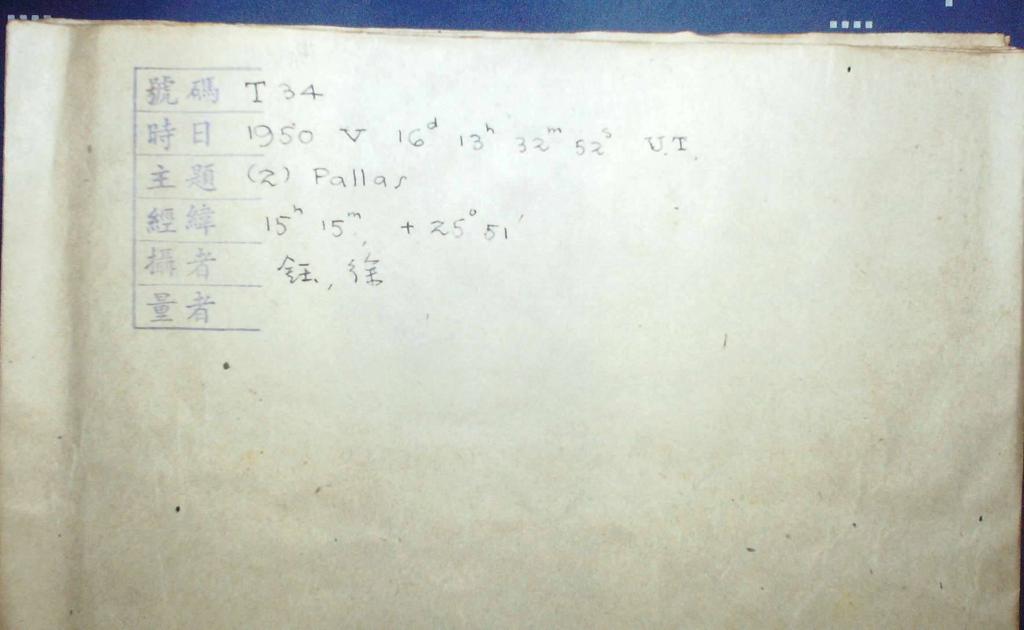 號碼 T 34
時日 1950 V 16ᵈ 13ʰ 32ᵐ 52ˢ U.T.
主題 (2) Pallas
經緯 15ʰ 15ᵐ, + 25° 51′
攝者 鈺, 徐
量者